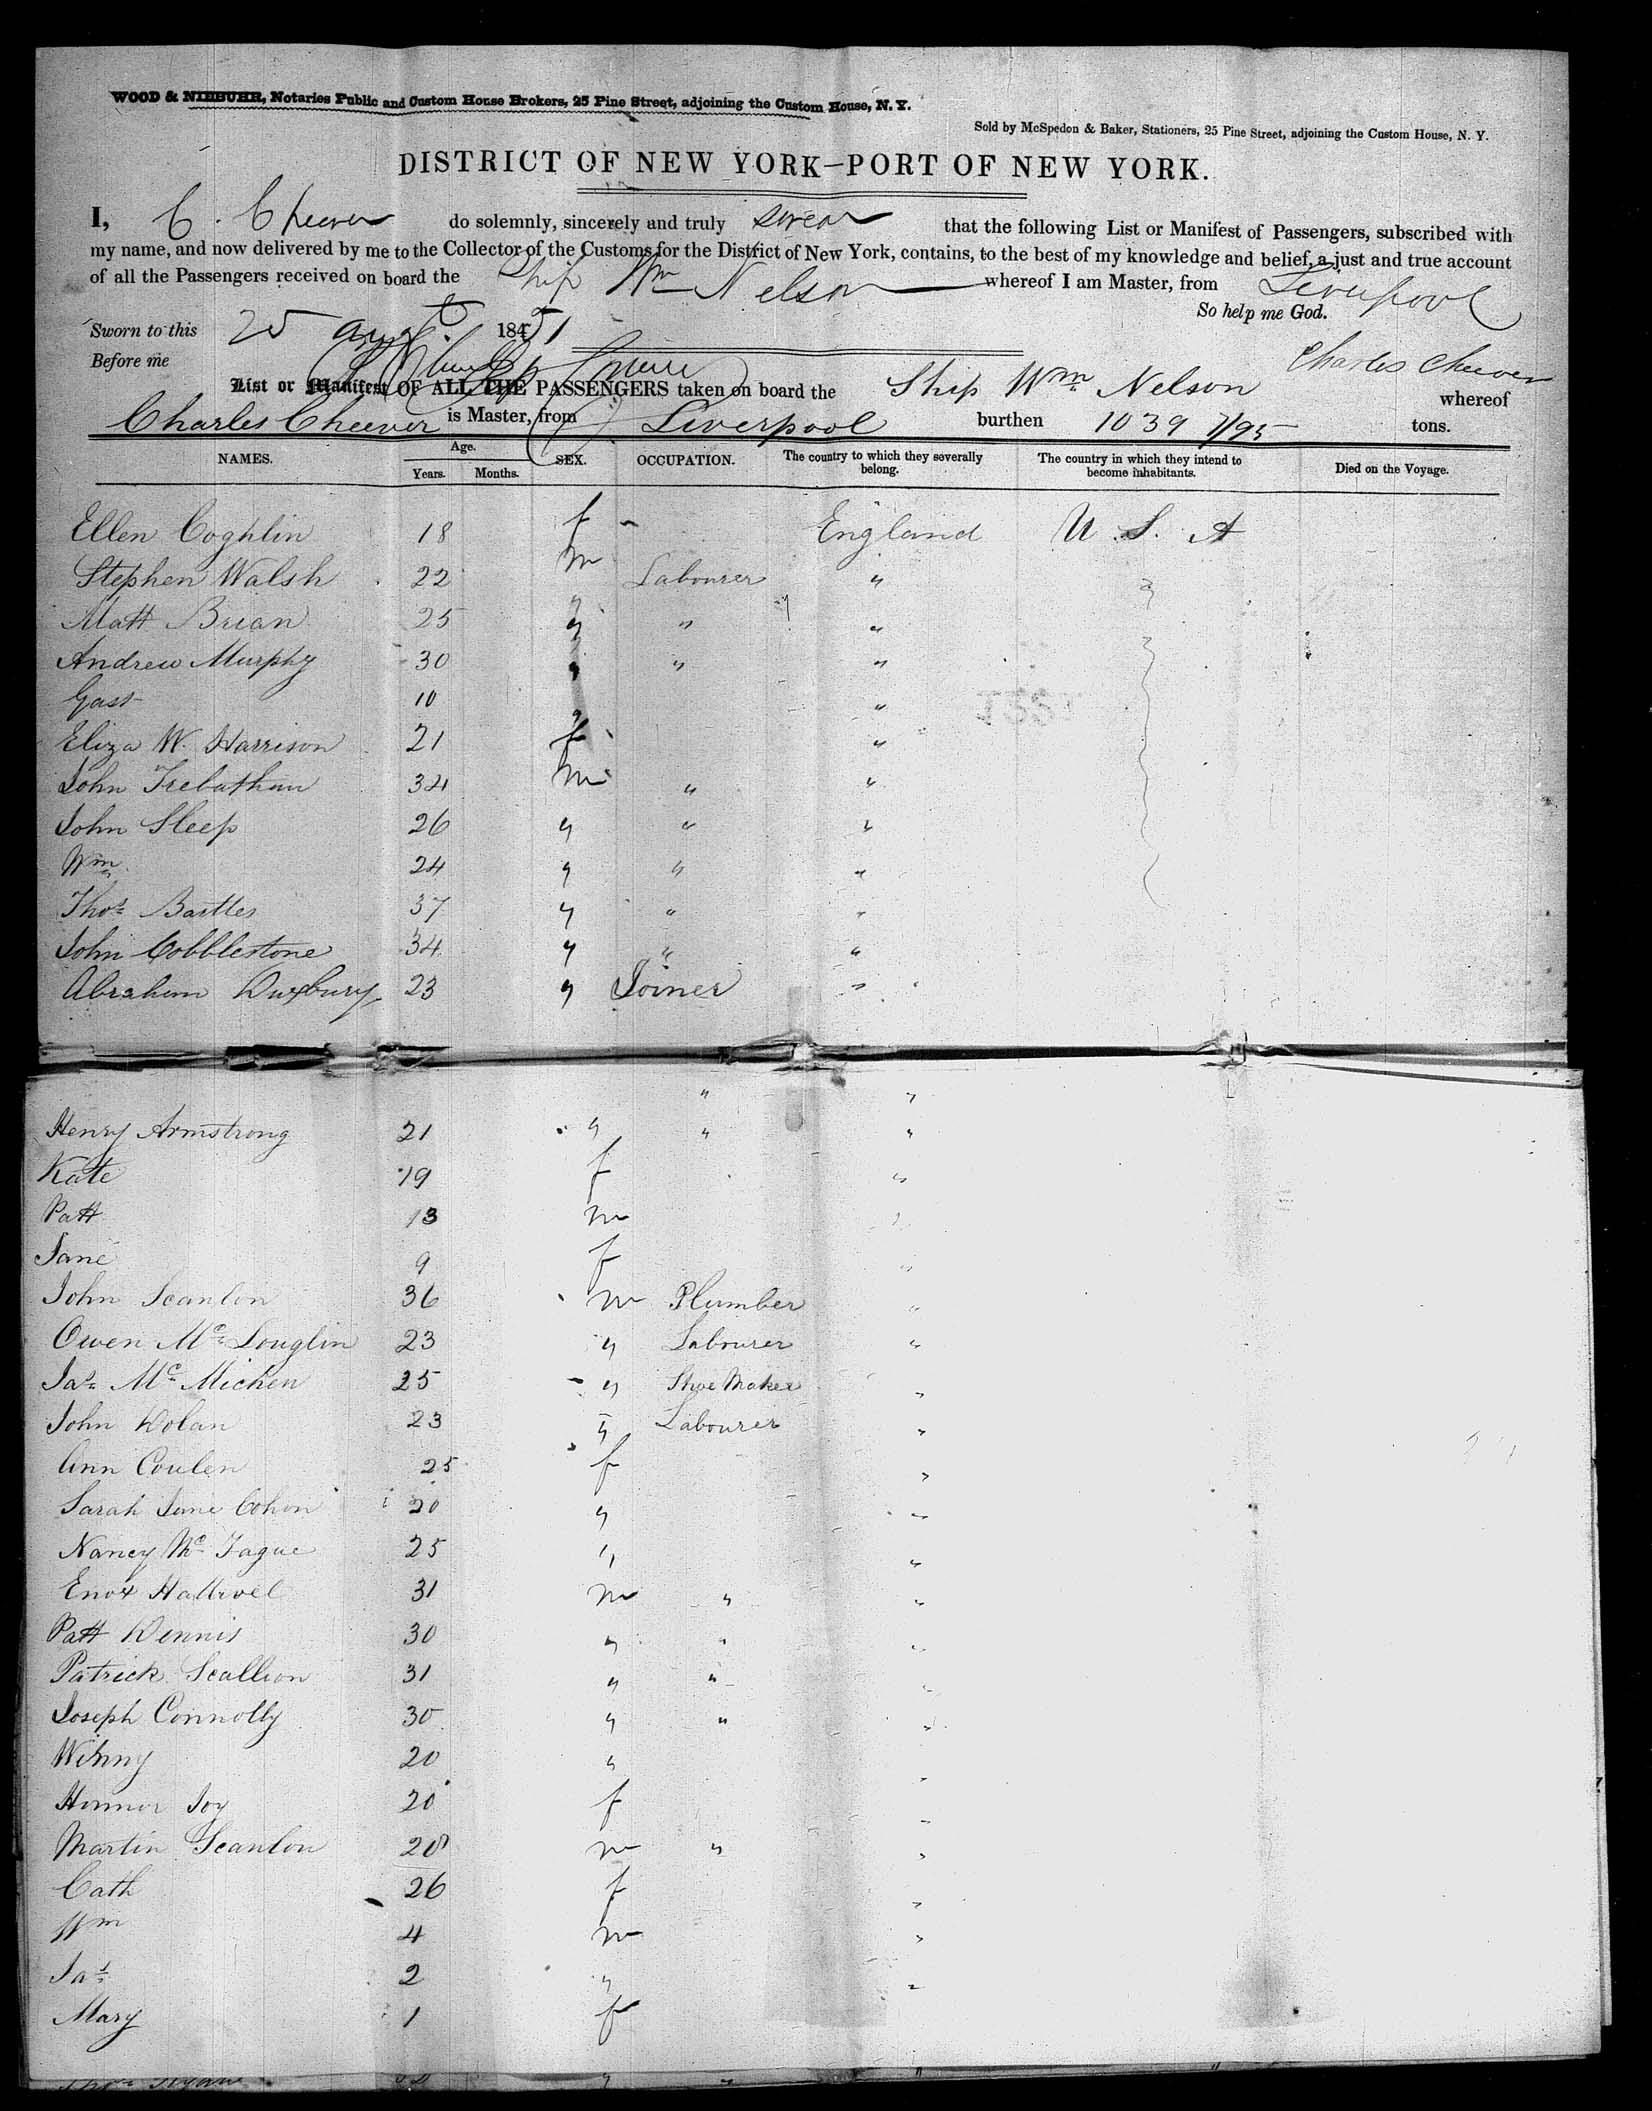 WOOD & NIEBUHR, Notaries Public and Custom House Brokers, 25 Pine Street, adjoining the Custom House, N. Y.
Sold by McSpedon & Baker, Stationers, 25 Pine Street, adjoining the Custom House, N. Y.
DISTRICT OF NEW YORK—PORT OF NEW YORK.
I, C. Cheever do solemnly, sincerely and truly swear that the following List or Manifest of Passengers, subscribed with
my name, and now delivered by me to the Collector of the Customs for the District of New York, contains, to the best of my knowledge and belief, a just and true account
of all the Passengers received on board the Ship Wm Nelson whereof I am Master, from Liverpool
So help me God.
Sworn to this 25 Augt 1851
Before me Charles Cheever
List or Manifest OF ALL THE PASSENGERS taken on board the Ship Wm Nelson whereof
Charles Cheever is Master, from Liverpool burthen 1039 7/95 tons.
NAMES. Age. Years. Months. SEX. OCCUPATION. The country to which they severally belong. The country in which they intend to become inhabitants. Died on the Voyage.
Ellen Coghlin 18 f - England U. S. A
Stephen Walsh 22 m Labourer "
Matt Brian 25 " " "
Andrew Murphy 30 " " "
10 " "
Eliza W. Harrison 21 f "
John Trebathan 34 m " "
John Sleep 26 " " "
Wm 24 " " "
Thos Bartles 37 " " "
John Cobblestone 34 " " "
Abraham Duxbury 23 " Joiner "
" "
Henry Armstrong 21 " " "
Kate 19 f "
Patt 13 m "
Jane 9 f "
John Scanlon 36 m Plumber "
Owen Mc Louglin 23 " Labourer "
Jas Mc Micken 25 " Shoe Maker "
John Dolan 23 " Labourer "
Ann Coulen 25 f "
Sarah Jane Cohon 20 " "
Nancy Mc Tague 25 " "
31 m " "
Patt Dennis 30 " " "
Patrick Scallion 31 " " "
Joseph Connolly 30 " " "
Winny 20 " "
Honnor Joy 20 f "
Martin Scanlon 28 m " "
Cath 26 f "
Wm 4 m "
Jas 2 " "
Mary 1 f